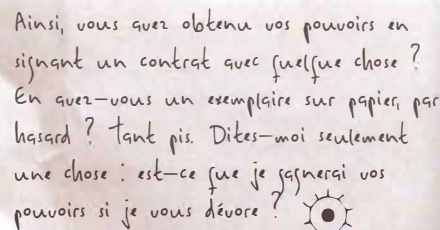 Ainsi, vous avez obtenu vos pouvoirs en
signant un contrat avec quelque chose ?
En avez-vous un exemplaire sur papier, par
hasard ? Tant pis. Dites-moi seulement
une chose : est-ce que je gagnerai vos
pouvoirs si je vous dévore ?